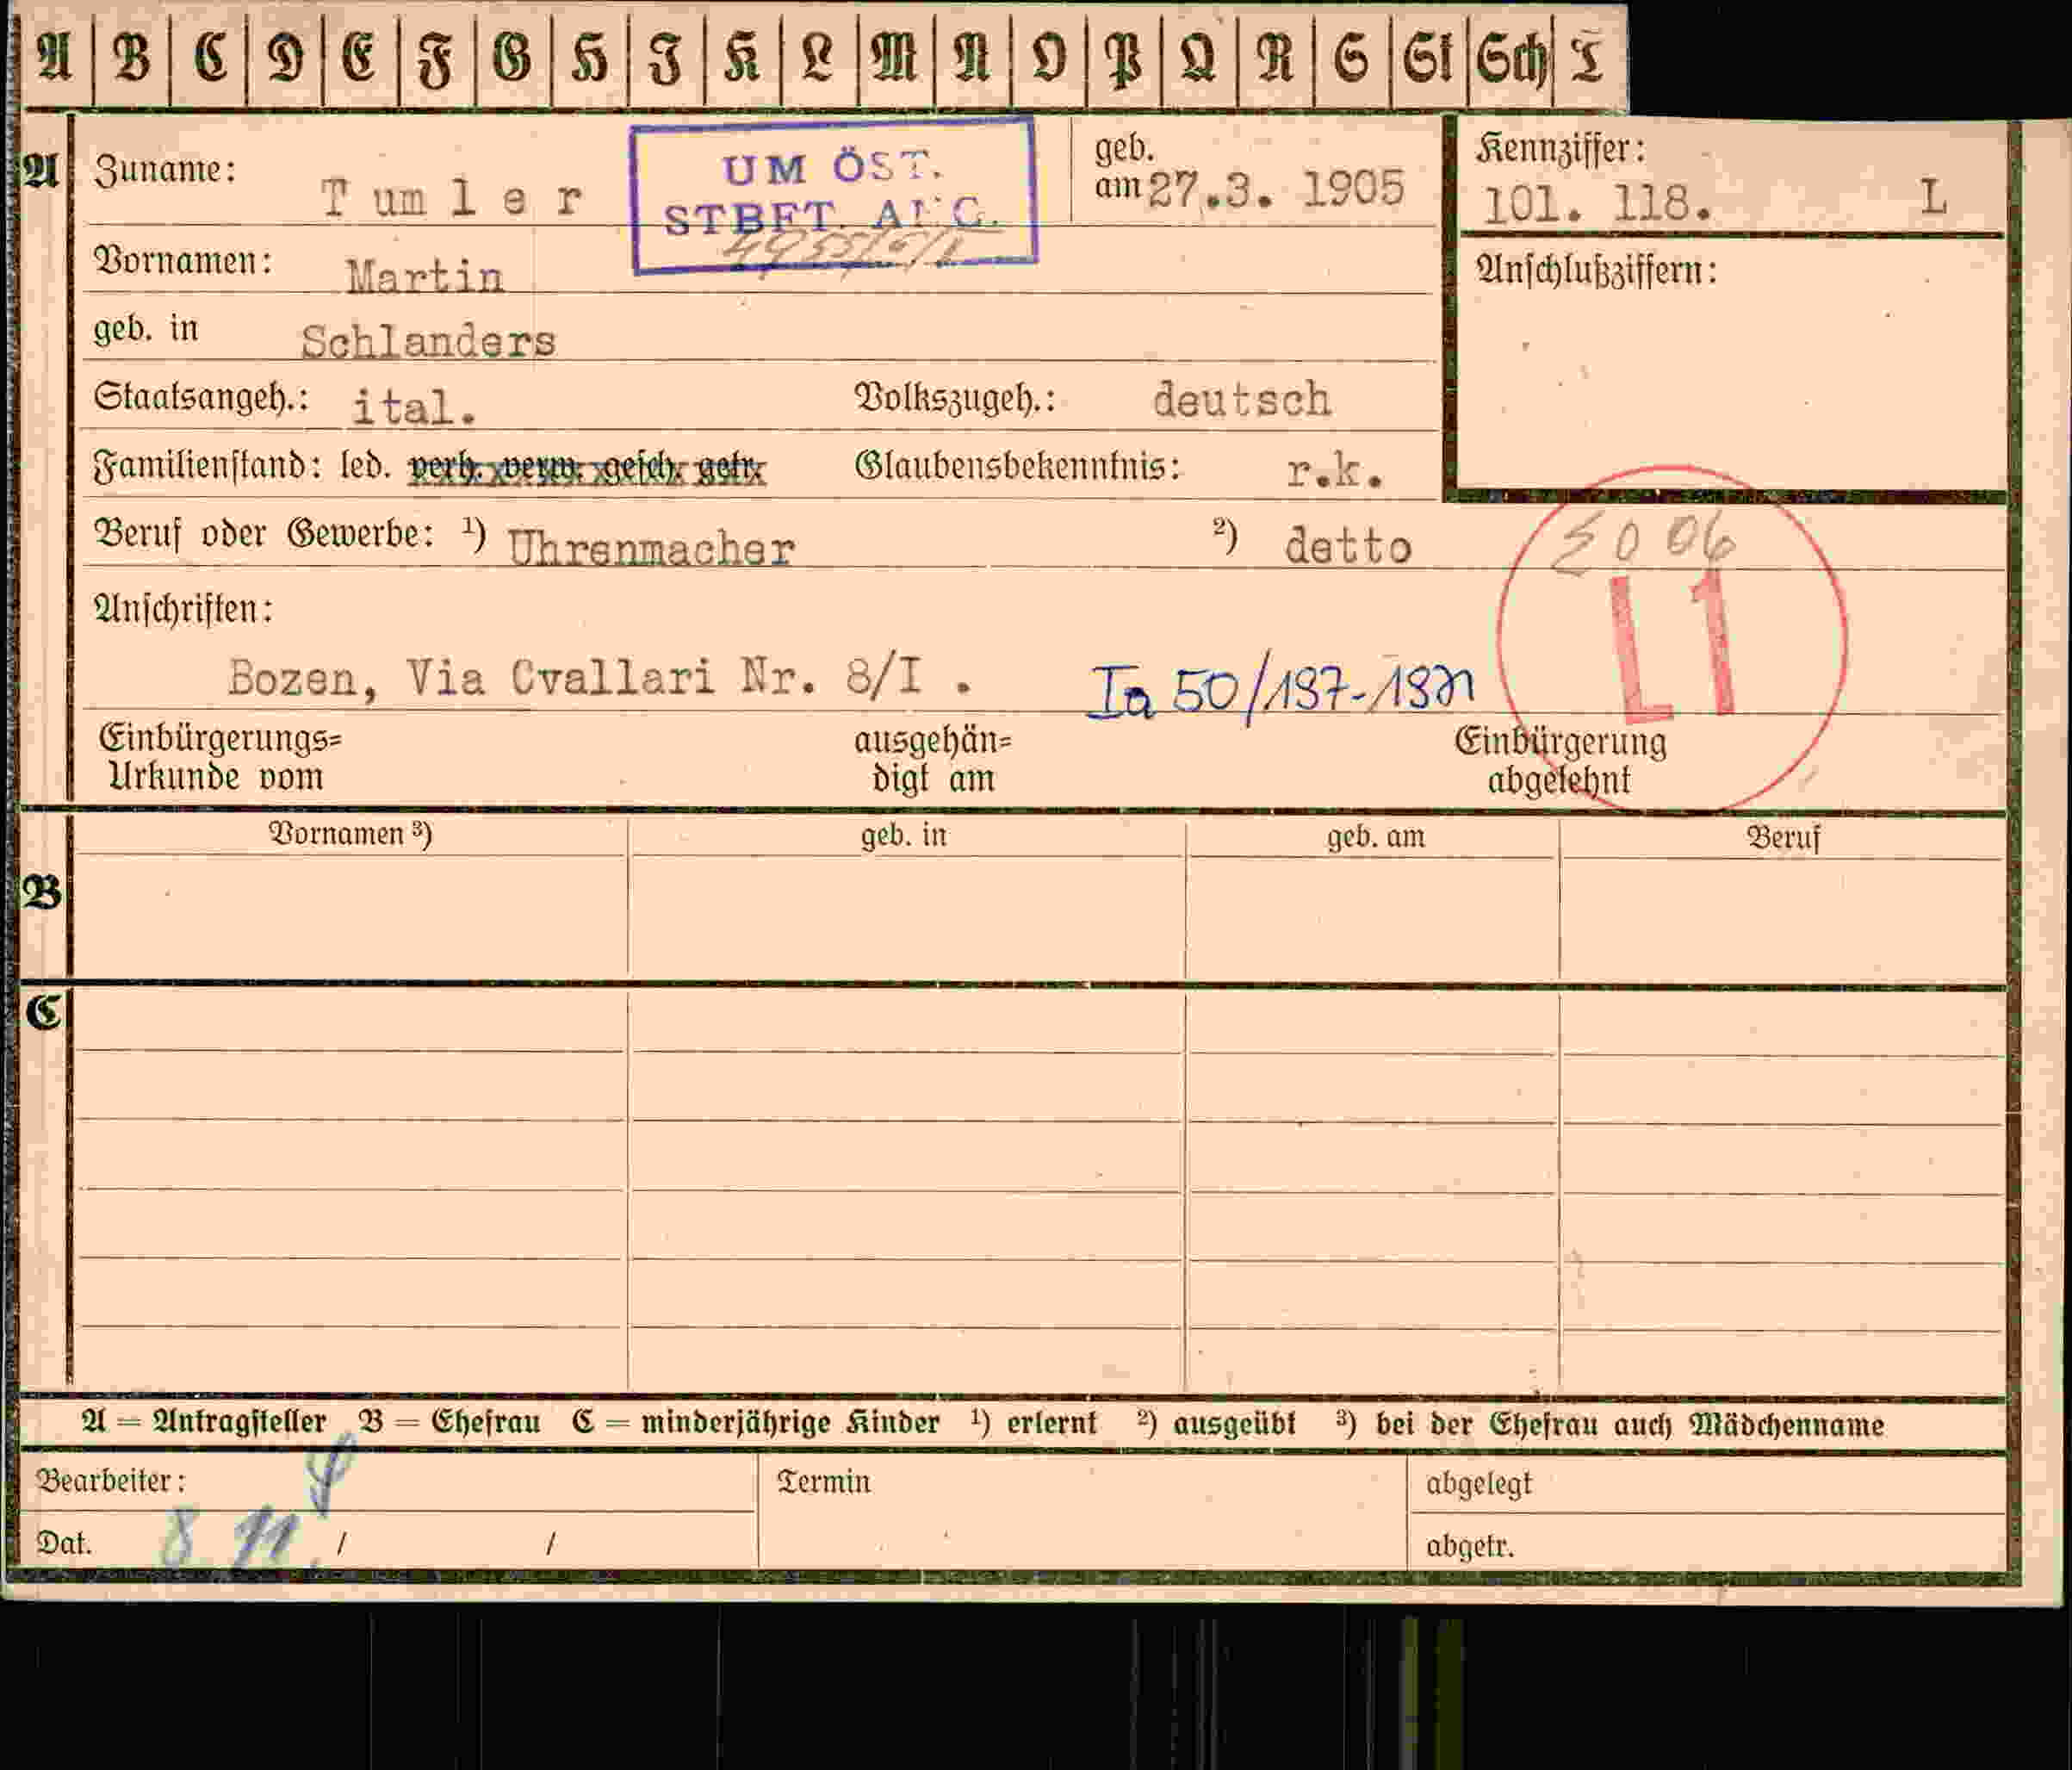 A B C D E F G H I K L M N O P Q R S St Sch T
A Zuname: Tumler
UM ÖST.
STBFT. ANG.
geb. am 27.3. 1905
Kennziffer:
101. 118. L
Vornamen: Martin
Anschlußziffern:
geb. in Schlanders
Staatsangeh.: ital. Volkszugeh.: deutsch
Familienstand: led. verh. verw. gesch. getr. Glaubensbekenntnis: r.k.
Beruf oder Gewerbe: ¹) Uhrenmacher ²) detto
5006
L1
Anschriften:
Bozen, Via Cvallari Nr. 8/I .
Ia 50/197-
Einbürgerungs=
Urkunde vom
ausgehän=
digt am
Einbürgerung
abgelehnt
Vornamen ³) geb. in geb. am Beruf
B
C
A = Antragsteller B = Ehefrau C = minderjährige Kinder ¹) erlernt ²) ausgeübt ³) bei der Ehefrau auch Mädchenname
Bearbeiter: Termin abgelegt
Dat. 8 11. / / abgetr.